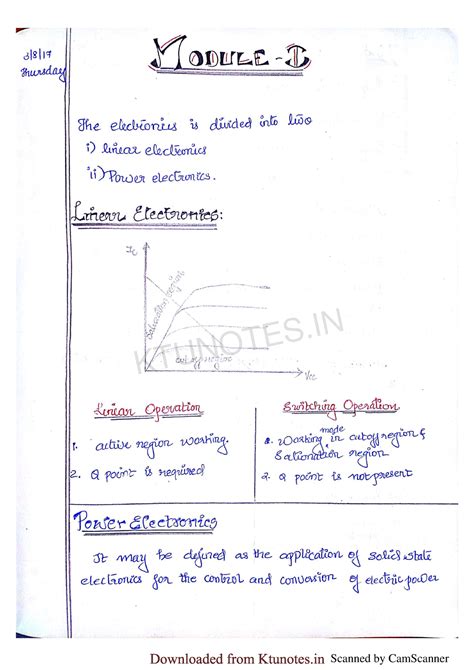 3/8/17
Thursday
MODULE-I
The electronics is divided into two
i) linear electronics
ii) Power electronics.
Linear Electronics:
Ic
saturation region
cutoff region
Vcc
KTUNOTES.IN
Linear Operation
1. active region working.
2. Q point is required
Switching Operation
1. Working mode in cutoff region &
Saturation region
2. Q point is not present
Power Electronics
It may be defined as the application of solid state
electronics for the control and conversion of electric power
Downloaded from Ktunotes.in Scanned by CamScanner